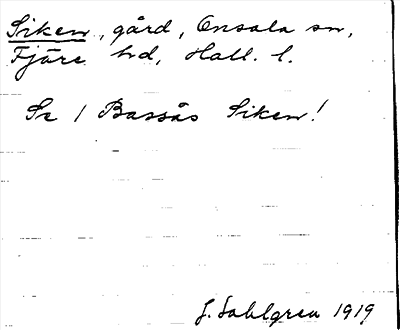 Siken, gård, Onsala sn,
Fjäre hd, Hall. l.
Se / Bassås Siken!
J. Sahlgren 1919